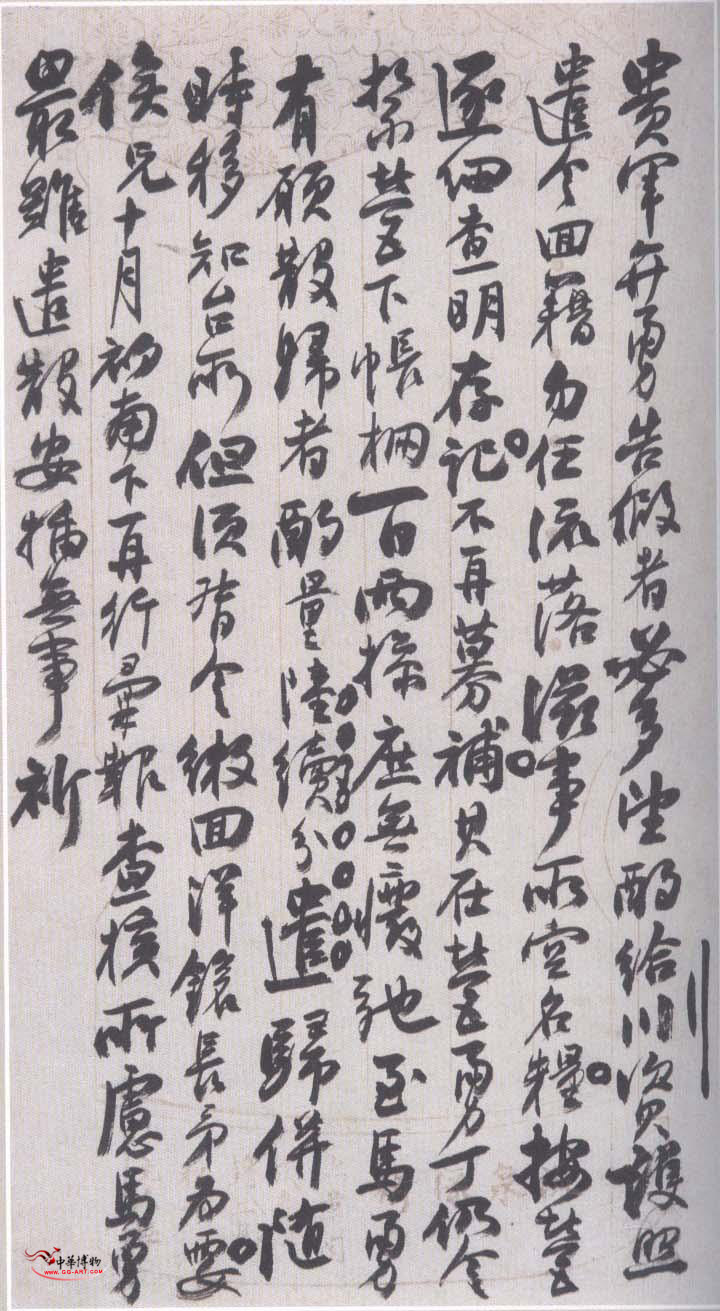 貴軍弁勇告假者必多望酌給川資護照
遣令回籍勿任流落滋事所空名糧按營
逐細查明存記不再募補其在營勇丁仍令
紮營下帳棚一日兩操庶無弛至馬勇
有願散歸者酌量陸續分遣歸併隨
時移知台所但須督令繳回洋鎗長矛為要
俟兄十月初南下再行彙報查核所慮馬勇
最難遣散安插無事祈
中華博物
WWW.GG-ART.COM